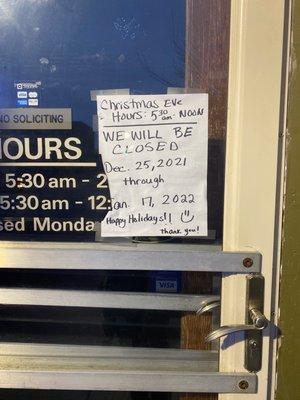 NO SOLICITING
HOURS
5:30am - 2
5:30am - 12:
sed Monda
Christmas Eve
- Hours: 5:30 am - NOON
WE WILL BE
CLOSED
Dec. 25, 2021
through
Jan. 17, 2022
Happy Holidays!!
Thank you!
VISA